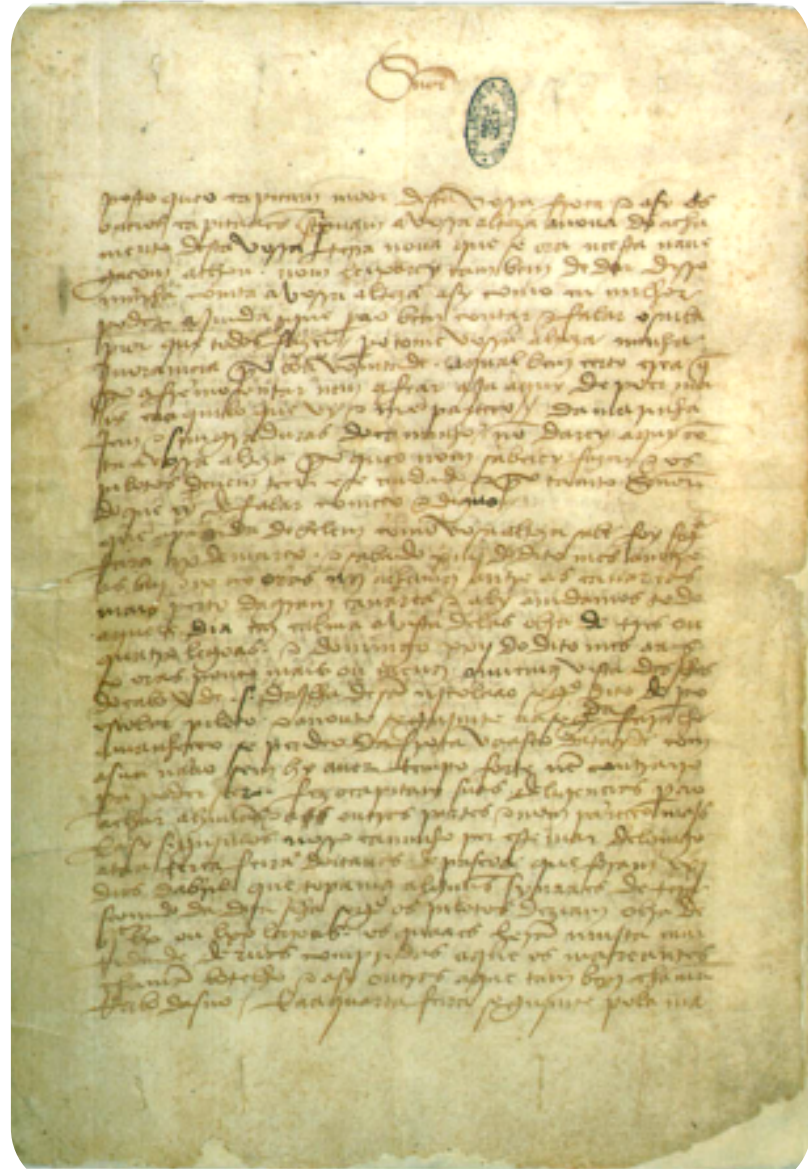 Snor
posto queo capitam moor desta vossa frota e asy os
outros capitaães screpuam a vossa alteza a noua do acha
mento desta vossa terra noua que se ora neesta naue
gaçom achou. nom leixarey tambem de dar disso
minha comta a vossa alteza asy como eu milhor
poder ajmda que pera o bem contar e falar o saiba
pior que todos fazer. pero tome vossa alteza minha
jnoramçia por boa vomtade. aqual bem certo crea q̃
por afremosentar nem afear aja aquy de poer ma
is ca aquilo que vy e me pareceo. da marinha
jem e simgraduras do caminho nõ darey aquy cõ
ta a vossa alteza por queo nom saberey fazer e os
pilotos deuem teer ese cuidado e por tanto Snor
do que ey de falar começo e diguo
que a partida de belem como vosa alteza sabe foy segda
feira ix de março. e sabado xiiij do dito mes amtre
as biij e ix oras nos achamos antre as canareas
mais perto da gram canarea e aly amdamos todo
aquele dia em calma avista delas obra de tres ou
quatro legoas. e domingo xxij do dito mes aas
x oras pouco mais ou menos ouuemos vista das jlhas
do cabo verde .s. da jlha de sã njcolaao segº dito de pero
escolar piloto. e a noute segujmte aa segda feira lhe
amanheceo se perdeo da frota vaasco datayde com
a sua naao sem hy auer tempo forte nẽ contrairo
pera poder seer. fez ocapitam suas deligencias pera o
achar a huũas e a outras partes e nom pareceo majs
E asy segujmos nosso caminho per este mar delomgo
ataa terça feira doitauas de pascoa que foram xxj
dias dabril que topamos alguũs synaaes de tera
seemdo da dita jlha segº os pilotos deziam obra de
bjc lx ou lxx legoas. os quaaes herã mujta cam
tidade deruas compridas aque os mareantes
chamã botelho e asy outras aque tambem chamã
rrabo dasno. E aaquarta feira segujmte pola ma